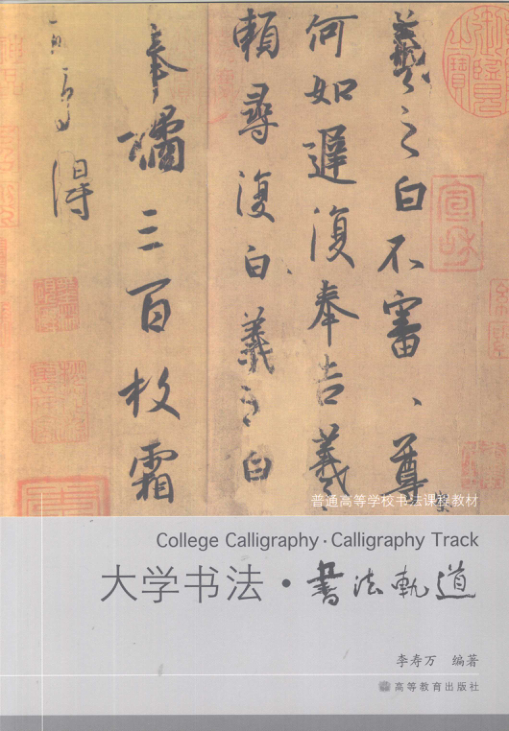 羲之白不審、尊
何如遲復奉告羲
頼尋復白羲之白
奉橘三百枚霜
得
普通高等学校书法课程教材
College Calligraphy·Calligraphy Track
大学书法·書法軌道
李寿万 编著
高等教育出版社